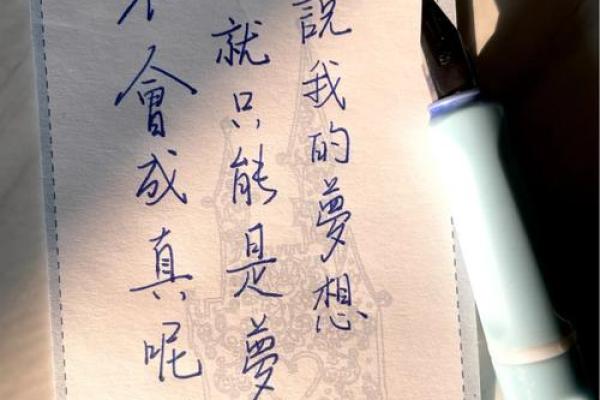 說我的夢想
就只能是夢
不會成真呢